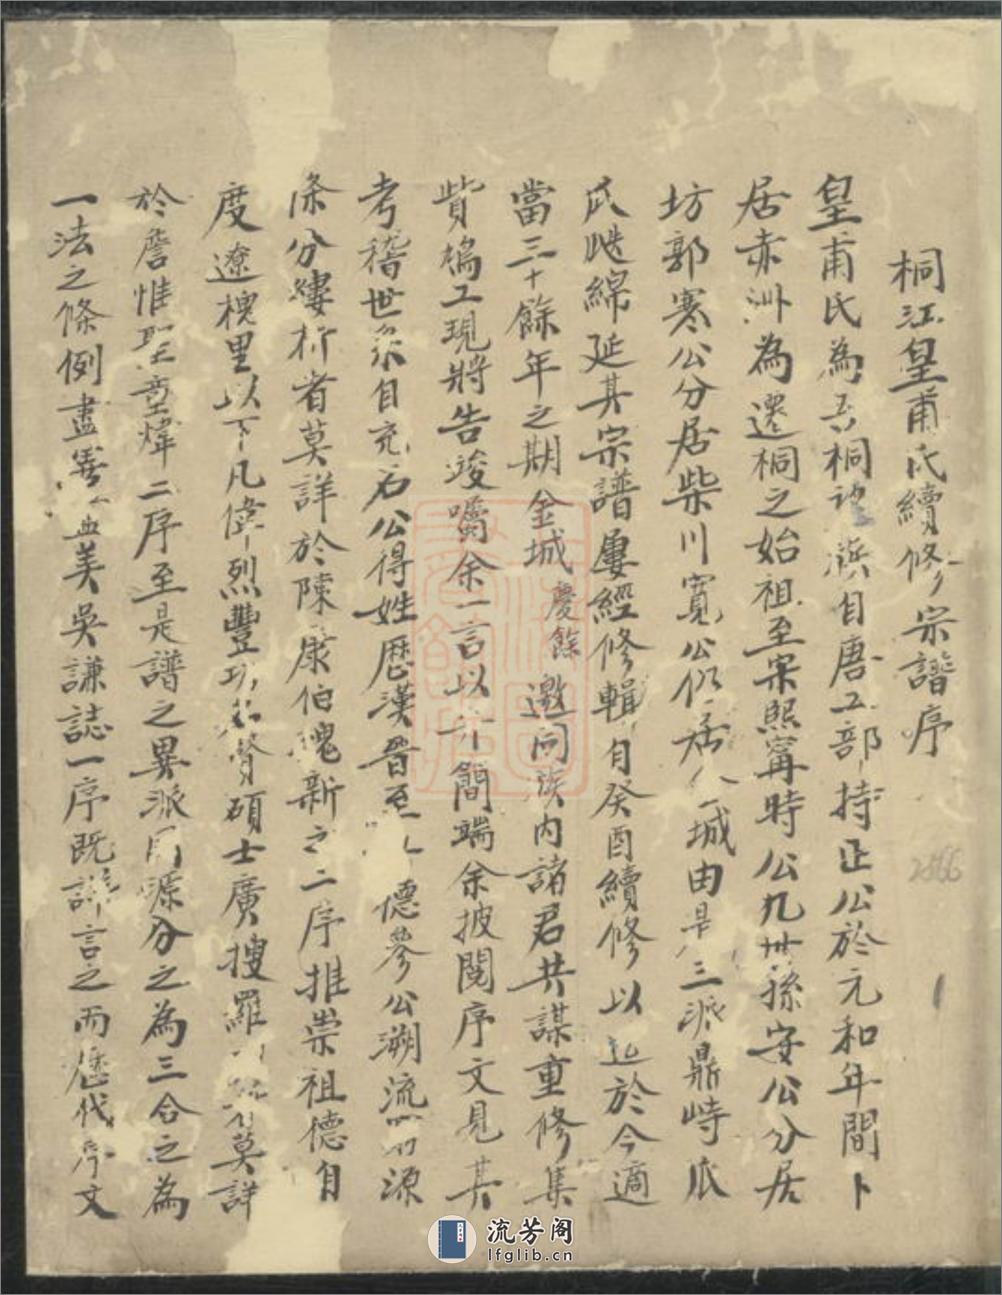 桐江皇甫氏續修宗譜序
皇甫氏為吾桐望族自唐工部持正公於元和年間卜
居赤洲為遷桐之始祖至宋熙寧時公九世孫安公分居
坊郭寒公分居柴川寬公仍居八城由是三派鼎峙瓜
瓞綿延其宗譜屢經修輯自癸酉續修以迄於今適
當三十餘年之期金城慶餘邀同族内諸君共謀重修集
貲鳩工現將告竣囑余一言以弁簡端余披閱序文見其
考稽世系自充石公得姓歷漢晉至 德參公溯流 源
條分縷析者莫詳於陳康伯魏新之二序推崇祖德自
度遼槐里以下凡偉烈豐功名賢碩士廣搜羅 莫詳
於詹惟聖童煒二序至是譜之異派同源分之為三合之為
一法之條例盡善盡美吳謙誌一序既詳言之而歷代序文
2866
1
流芳阁
lfglib.cn